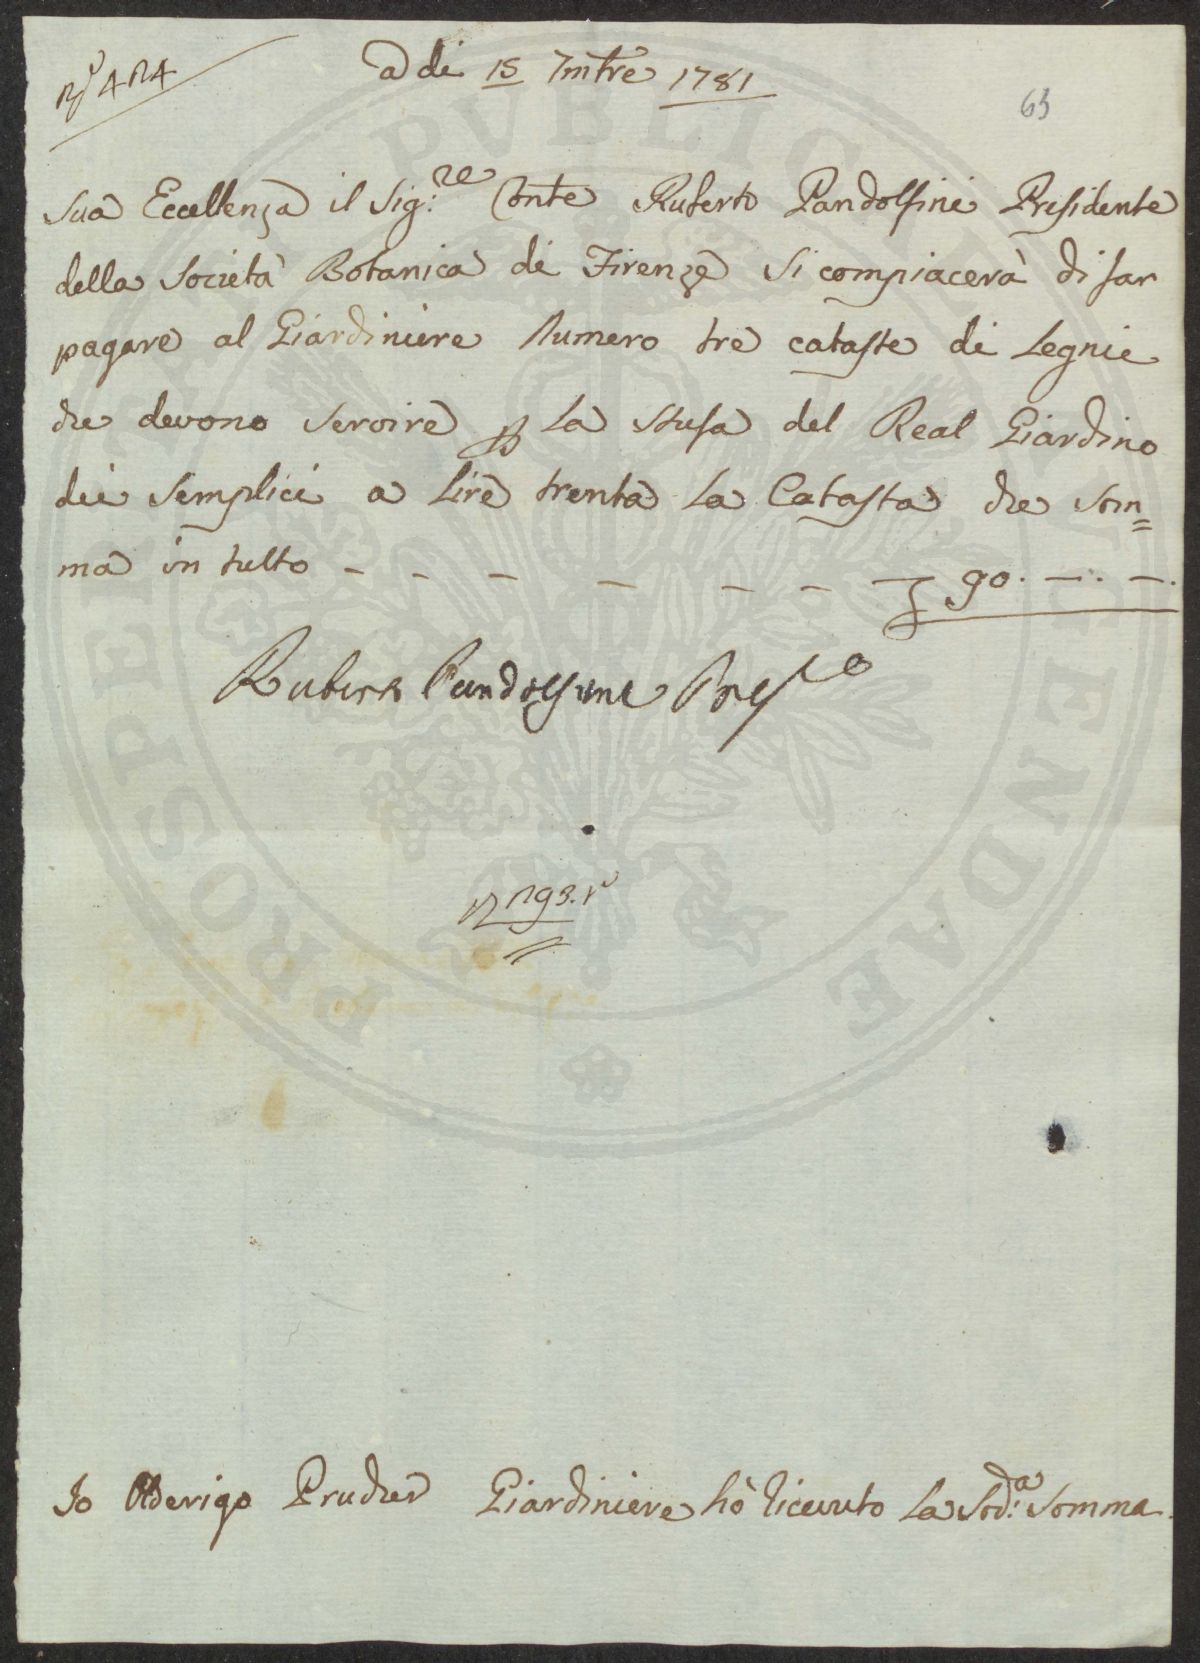 N.º 424
a di 15 7mbre 1781
63
Sua Eccellenza il Sig:re Conte Ruberto Pandolfini Presidente
della Società Botanica di Firenze Si compiacerà di far
pagare al Giardiniere Numero tre cataste di Legnie
che devono servire p la stufa del Real Giardino
dei Semplici a Lire trenta la Catasta che som=
ma in tutto - - - - - - - £ 90. -. -.
Ruberto Pandolfini Preste
293.
Io Olderigo Prucher Giardiniere hò ricevuto la Sod:a Somma.
PROSPERITATI PUBLICAE AUGENDAE